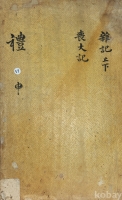 雜記 上下
喪大記
禮
申
kobay